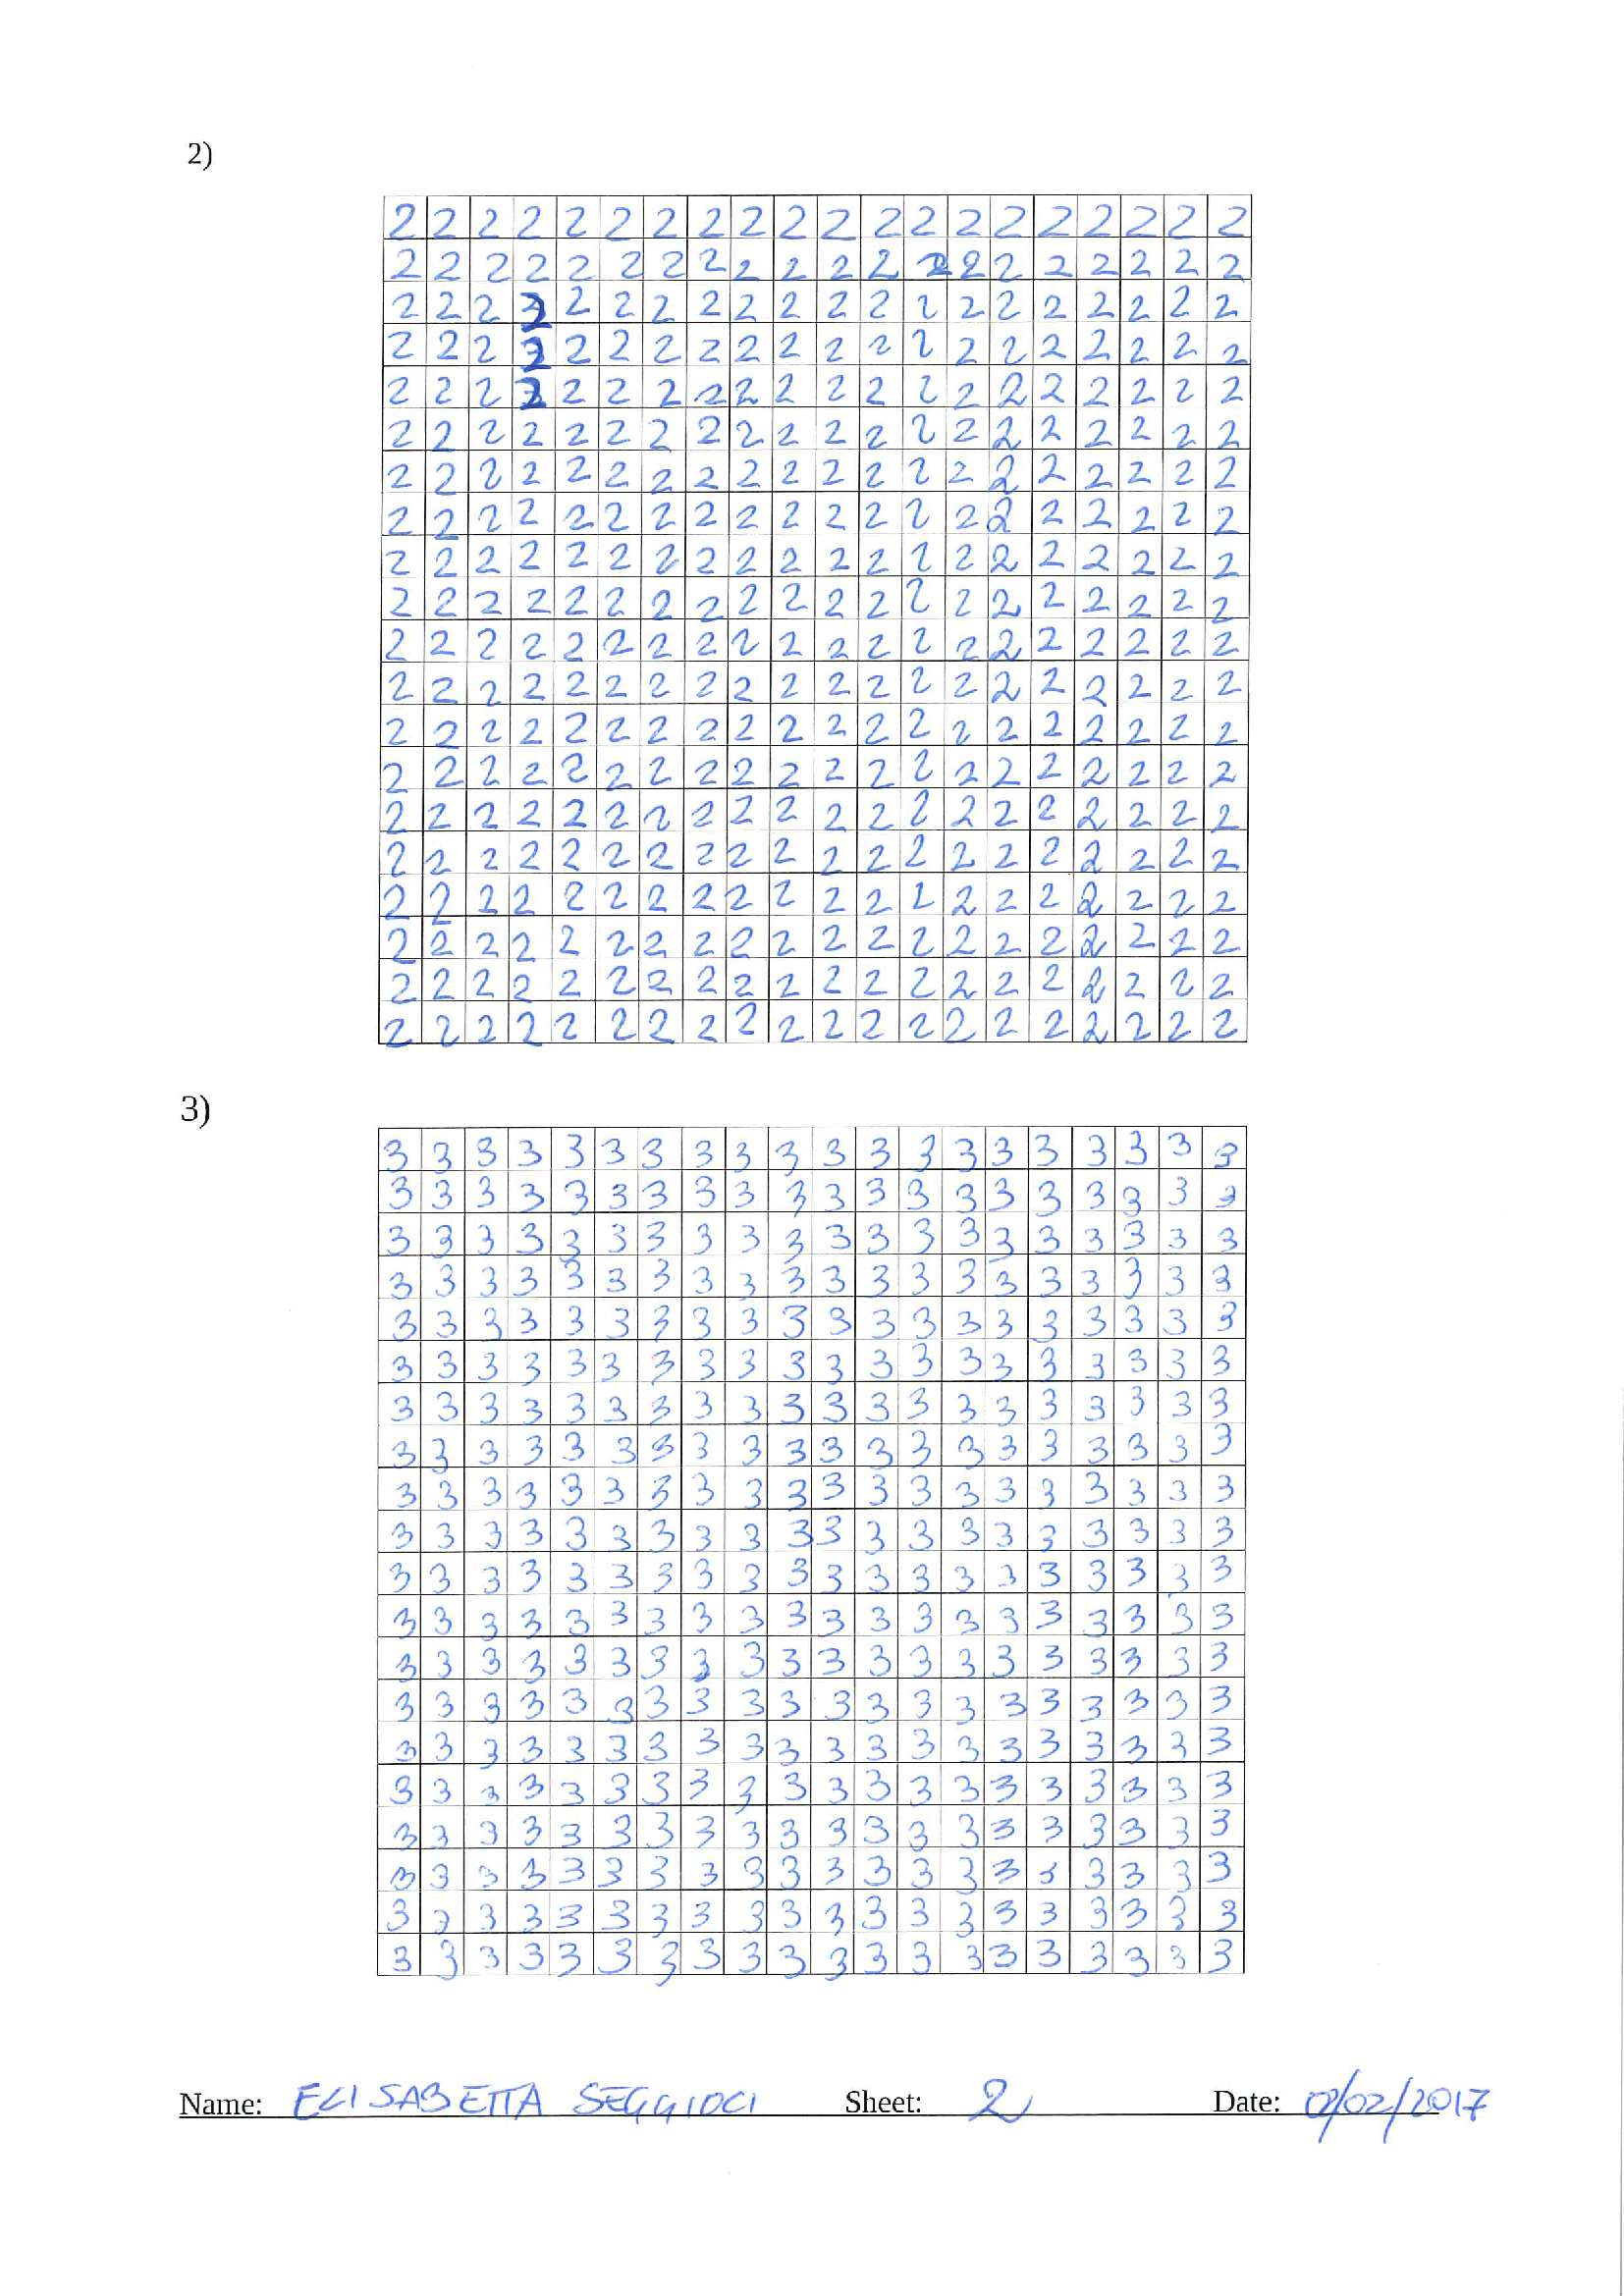 2)
2 2 2 2 2 2 2 2 2 2 2 2 2 2 2 2 2 2 2 2
2 2 2 2 2 2 2 2 2 2 2 2 2 2 2 2 2 2 2 2
2 2 2 2 2 2 2 2 2 2 2 2 2 2 2 2 2 2 2
2 2 2 2 2 2 2 2 2 2 2 2 2 2 2 2 2 2 2
2 2 2 2 2 2 2 2 2 2 2 2 2 2 2 2 2 2 2
2 2 2 2 2 2 2 2 2 2 2 2 2 2 2 2 2 2 2 2
2 2 2 2 2 2 2 2 2 2 2 2 2 2 2 2 2 2 2 2
2 2 2 2 2 2 2 2 2 2 2 2 2 2 2 2 2 2 2 2
2 2 2 2 2 2 2 2 2 2 2 2 2 2 2 2 2 2 2 2
2 2 2 2 2 2 2 2 2 2 2 2 2 2 2 2 2 2 2 2
2 2 2 2 2 2 2 2 2 2 2 2 2 2 2 2 2 2 2 2
2 2 2 2 2 2 2 2 2 2 2 2 2 2 2 2 2 2 2 2
2 2 2 2 2 2 2 2 2 2 2 2 2 2 2 2 2 2 2 2
2 2 2 2 2 2 2 2 2 2 2 2 2 2 2 2 2 2 2 2
2 2 2 2 2 2 2 2 2 2 2 2 2 2 2 2 2 2 2 2
2 2 2 2 2 2 2 2 2 2 2 2 2 2 2 2 2 2 2 2
2 2 2 2 2 2 2 2 2 2 2 2 2 2 2 2 2 2 2 2
2 2 2 2 2 2 2 2 2 2 2 2 2 2 2 2 2 2 2 2
2 2 2 2 2 2 2 2 2 2 2 2 2 2 2 2 2 2 2 2
2 2 2 2 2 2 2 2 2 2 2 2 2 2 2 2 2 2 2 2
3)
3 3 3 3 3 3 3 3 3 3 3 3 3 3 3 3 3 3 3 3
3 3 3 3 3 3 3 3 3 3 3 3 3 3 3 3 3 3 3 3
3 3 3 3 3 3 3 3 3 3 3 3 3 3 3 3 3 3 3 3
3 3 3 3 3 3 3 3 3 3 3 3 3 3 3 3 3 3 3 3
3 3 3 3 3 3 3 3 3 3 3 3 3 3 3 3 3 3 3 3
3 3 3 3 3 3 3 3 3 3 3 3 3 3 3 3 3 3 3 3
3 3 3 3 3 3 3 3 3 3 3 3 3 3 3 3 3 3 3 3
3 3 3 3 3 3 3 3 3 3 3 3 3 3 3 3 3 3 3 3
3 3 3 3 3 3 3 3 3 3 3 3 3 3 3 3 3 3 3 3
3 3 3 3 3 3 3 3 3 3 3 3 3 3 3 3 3 3 3 3
3 3 3 3 3 3 3 3 3 3 3 3 3 3 3 3 3 3 3 3
3 3 3 3 3 3 3 3 3 3 3 3 3 3 3 3 3 3 3 3
3 3 3 3 3 3 3 3 3 3 3 3 3 3 3 3 3 3 3 3
3 3 3 3 3 3 3 3 3 3 3 3 3 3 3 3 3 3 3 3
3 3 3 3 3 3 3 3 3 3 3 3 3 3 3 3 3 3 3 3
3 3 3 3 3 3 3 3 3 3 3 3 3 3 3 3 3 3 3 3
3 3 3 3 3 3 3 3 3 3 3 3 3 3 3 3 3 3 3 3
3 3 3 3 3 3 3 3 3 3 3 3 3 3 3 3 3 3 3 3
3 3 3 3 3 3 3 3 3 3 3 3 3 3 3 3 3 3 3 3
3 3 3 3 3 3 3 3 3 3 3 3 3 3 3 3 3 3 3 3
Name: ELISABETTA Sheet: 2 Date: